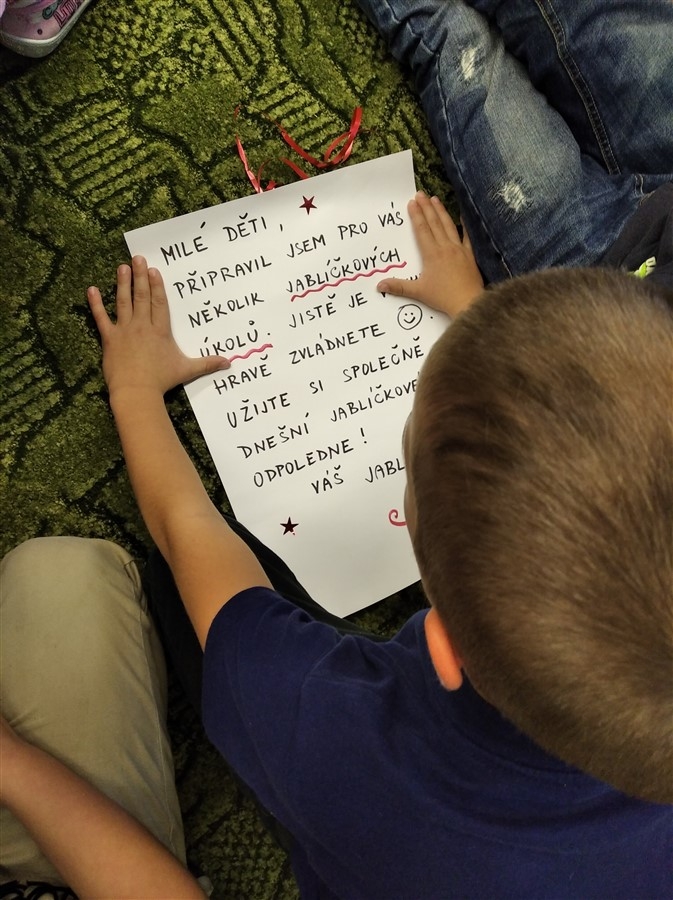 MILÉ DĚTI,
PŘIPRAVIL JSEM PRO VÁS
NĚKOLIK JABLÍČKOVÝCH
ÚKOLŮ. JISTĚ JE
HRAVĚ ZVLÁDNETE
UŽIJTE SI SPOLEČNĚ
DNEŠNÍ JABLÍČKOVÉ
ODPOLEDNE!
VÁŠ